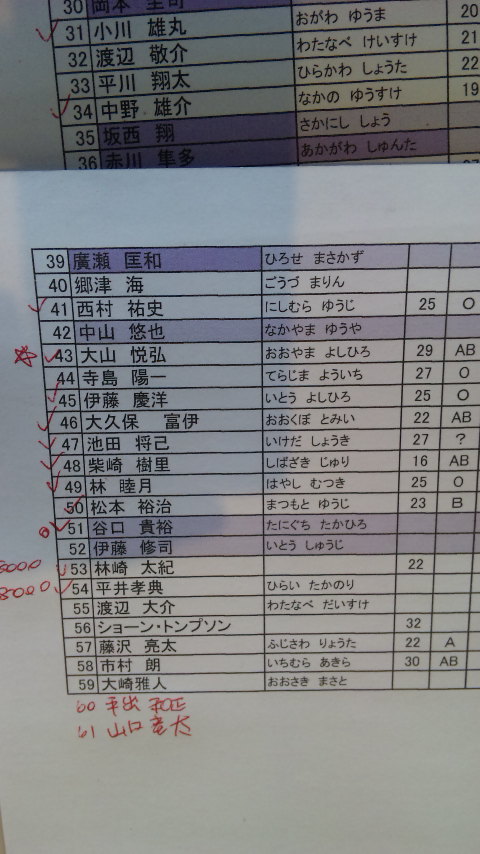 30 岡本 圭司
31 小川 雄丸 おがわ ゆうま 20
32 渡辺 敬介 わたなべ けいすけ 21
33 平川 翔太 ひらかわ しょうた 22
34 中野 雄介 なかの ゆうすけ 19
35 坂西 翔 さかにし しょう
36 赤川 隼多 あかがわ しゅんた
39 廣瀬 匡和 ひろせ まさかず
40 郷津 海 ごうづ まりん
41 西村 祐史 にしむら ゆうじ 25 O
42 中山 悠也 なかやま ゆうや
43 大山 悦弘 おおやま よしひろ 29 AB
44 寺島 陽一 てらじま よういち 27 O
45 伊藤 慶洋 いとう よしひろ 25 O
46 大久保 富伊 おおくぼ とみい 22 AB
47 池田 将己 いけだ しょうき 27 ?
48 柴崎 樹里 しばざき じゅり 16 AB
49 林 睦月 はやし むつき 25 O
50 松本 裕治 まつもと ゆうじ 23 B
51 谷口 貴裕 たにぐち たかひろ
52 伊藤 修司 いとう しゅうじ
53 林崎 太紀 22
8000 54 平井孝典 ひらい たかのり
55 渡辺 大介 わたなべ だいすけ
56 ショーン・トンプソン 32
57 藤沢 亮太 ふじさわ りょうた 22 A
58 市村 朗 いちむら あきら 30 AB
59 大崎雅人 おおさき まさと
60 平出 和正
61 山口